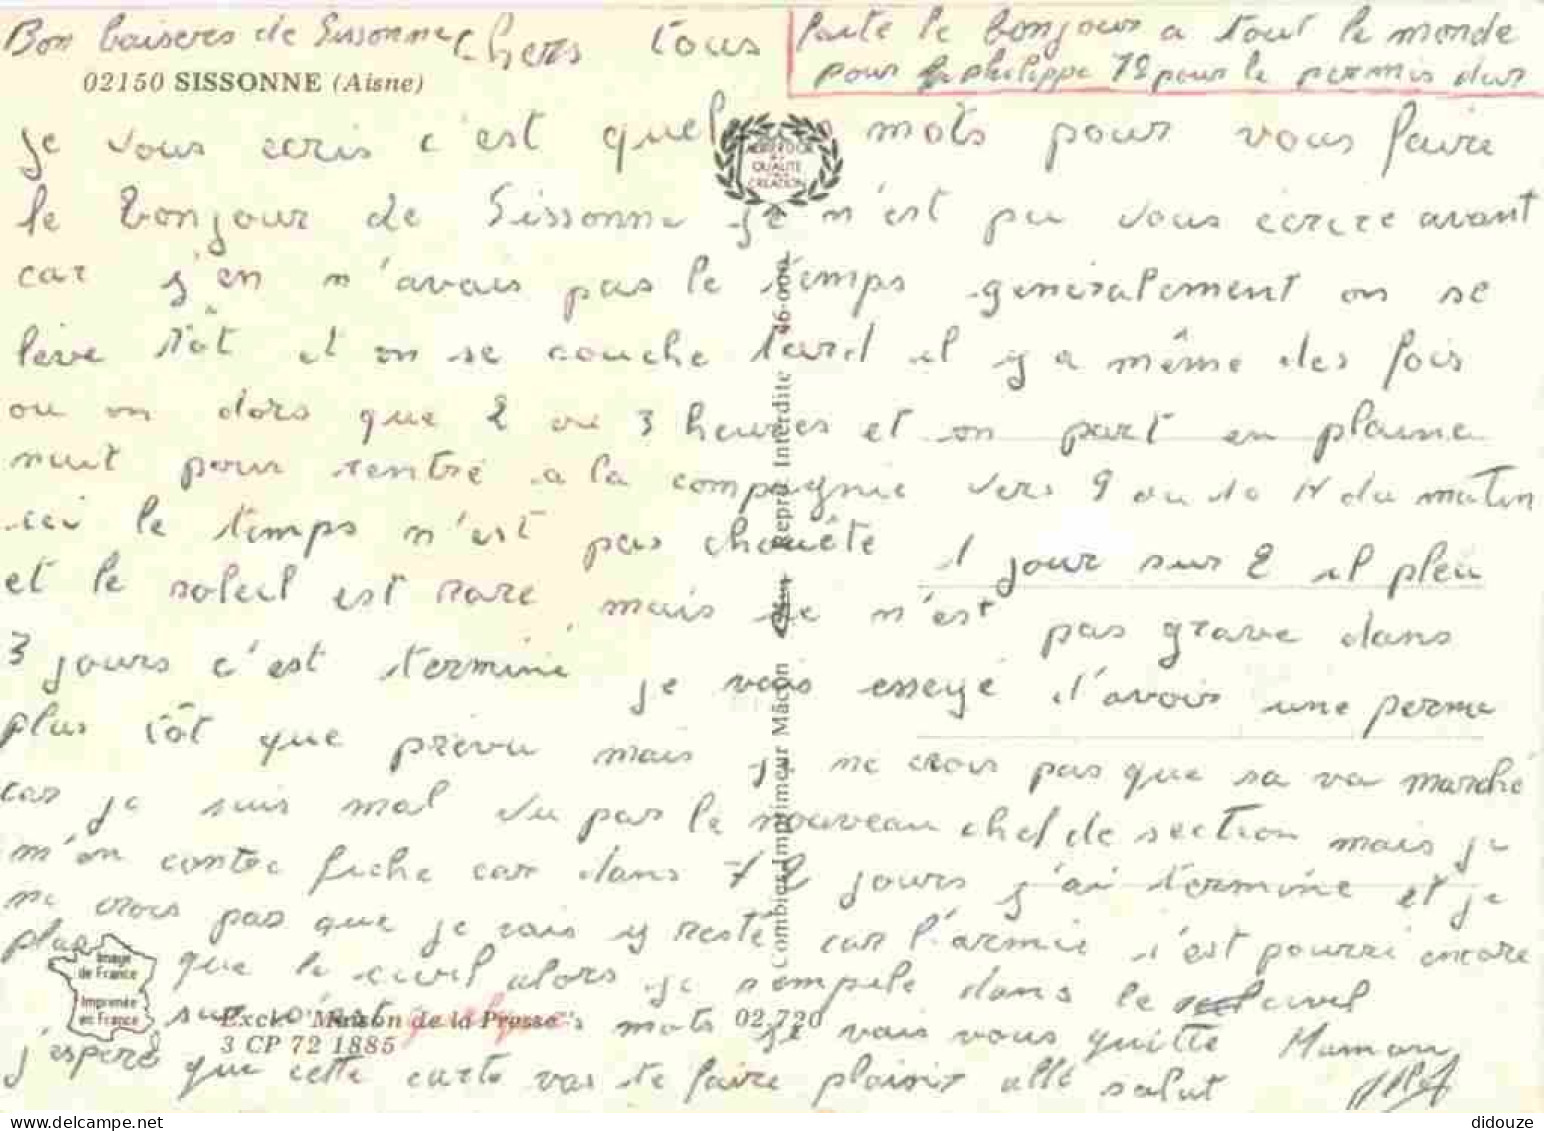 Bon baiseres de Sissonne Chers tous
faite le bonjour a tout le monde
pour philippe 12 pour le permis dur
02150 SISSONNE (Aisne)
je vous ecris c'est quelques mots pour vous faire
MEILLEUR
QUALITE
CREATION
le bonjour de Sissonne je n'est pu vous ecrire avant
car j'en n'avais pas le temps generalement on se
lève tôt et on se couche tard il y a même des fois
ou on dors que 2 ou 3 heures et on part en plaine
nuit pour rentré a la compagnie vers 9 ou 10 H du matin
ici le temps n'est pas chouète 1 jour sur 2 il pleu
et le soleil est rare mais ce n'est pas grave dans
3 jours c'est terminé je vais esseyé d'avoir une perme
plus tôt que prevu mais je ne crois pas que sa va marché
car je suis mal vu par le nouveau chef de section mais je
m'en contre fiche car dans 72 jours j'ai terminé et je
ne crois pas que je vais y resté car l'armée c'est pourri encore
plus que le civil alors je rempile dans le civil
sur mots je vais vous quitte Maman
j'espere que cette carte vas te faire plaisir allé salut
Image
de France
Imprimée
en France
Excl. "Maison de la Presse"
3 CP 72 1885
02.720
Combier Imprimeur Mâcon Repro Interdite 46-000
didouze